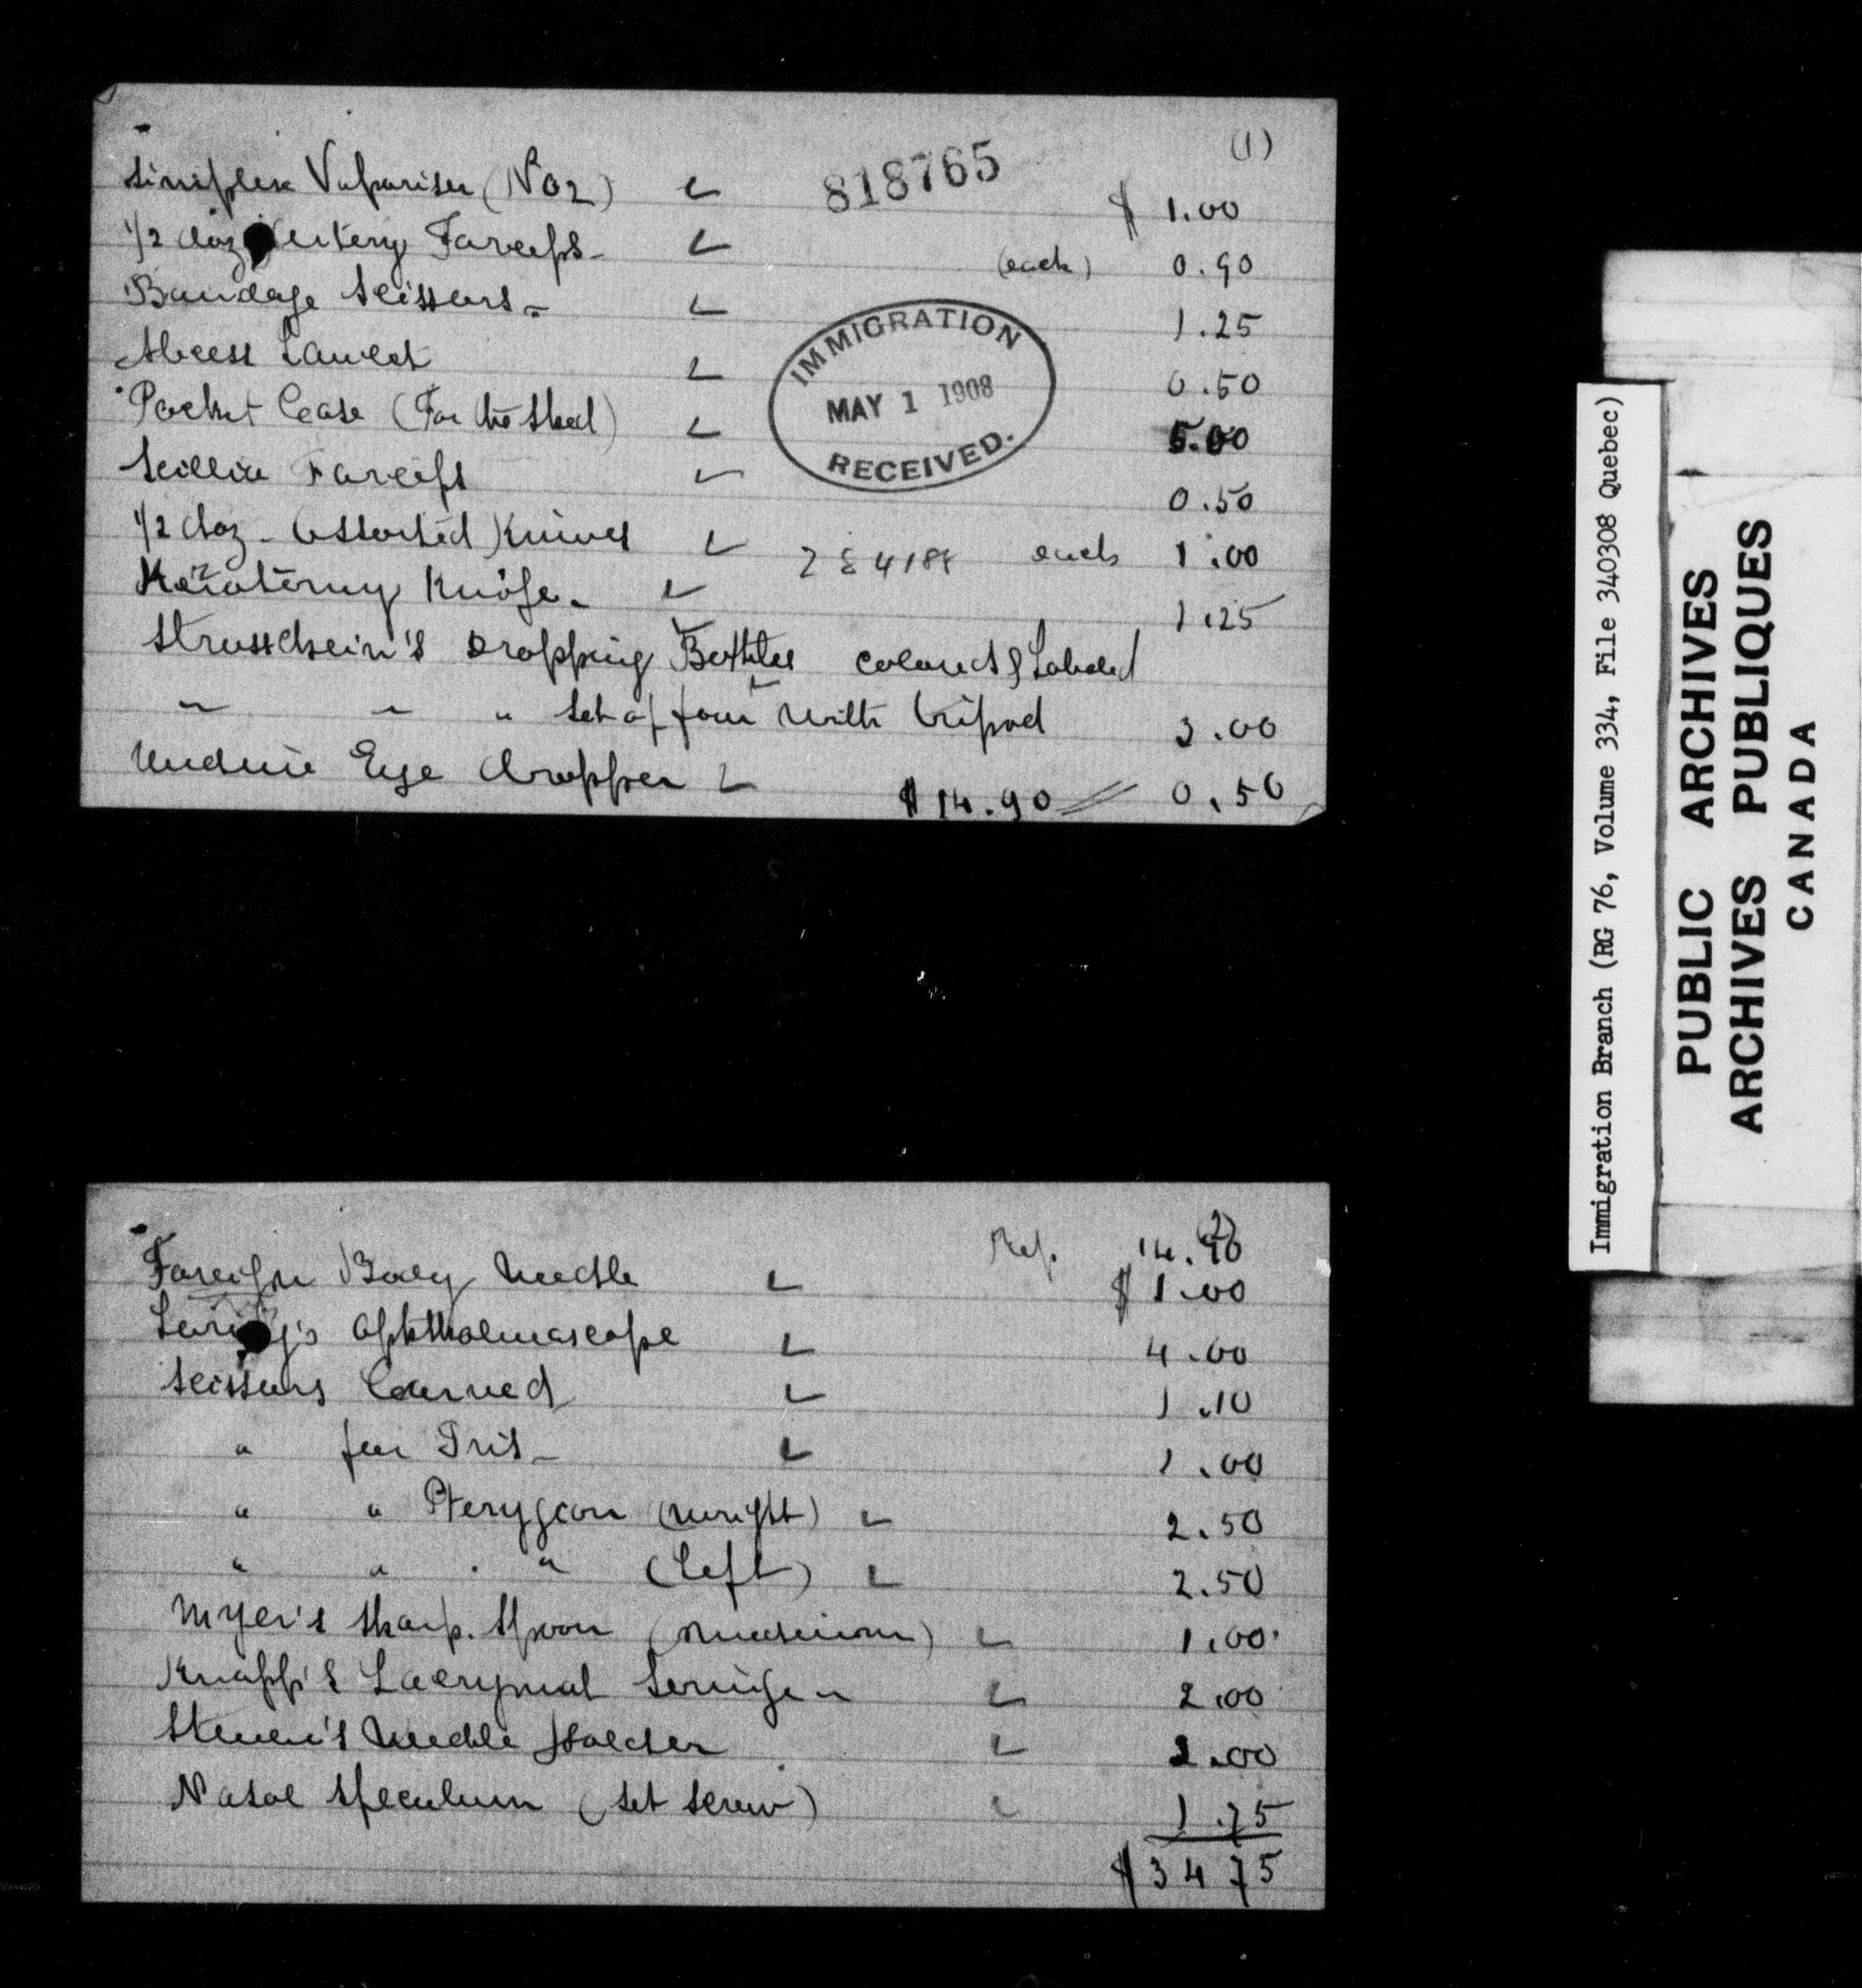 (1)
818765
Simplex Vaporiser (No 2) $ 1.00
1/2 doz Artery Forceps - (each) 0.90
Bandage Scissors - 1.25
Abcess Lancet 0.50
Pocket Case (For the Shed) 5.00
Scillia Forceps 0.50
1/2 doz - Assorted Knives each 1.00
Knife - 1.25
Dropping Bottles colored & Labeled
" " " Set of four with tripod 3.00
Undine Eye dropper $14.90 0.50
IMMIGRATION
MAY 1 1908
RECEIVED.
(2)
14.90
Foreign Body Needle $ 1.00
Loring's Ophtholmascope 4.00
Scissors Curved 1.10
" for Iris - 1.00
" " Pterygion (wright) 2.50
" " " (Left) 2.50
Myer's Sharp. Spoon (medium) 1.00
Knapp's Lacrymal Seringe 2.00
Steven's Needle Holder 2.00
Nasal Speculum (Set Screw) 1.75
$34 75
Immigration Branch (RG 76, Volume 334, File 340308 Quebec)
PUBLIC ARCHIVES
ARCHIVES PUBLIQUES
CANADA